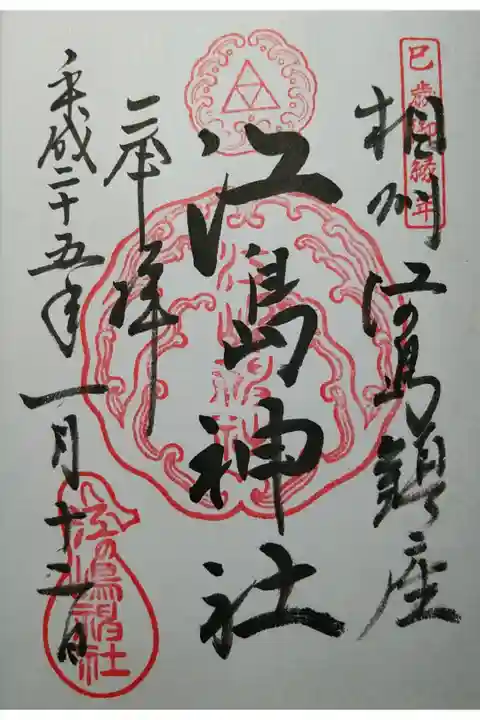 巳歳御縁年
相州江の島鎮座
江島神社
奉拝
平成二十五年一月十二日
江の嶋神社